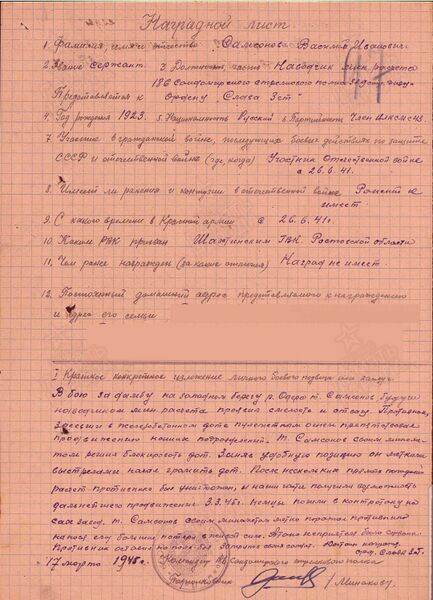 Наградной лист
1. Фамилия, имя и отчество Самсонов Василий Иванович
2. Звание сержант 3. Должность, часть Наводчик мин. расчета
186 Сандомирского стрелкового полка
Представляется к ордену „Слава 3 ст"
4. Год рождения 1923. 5. Национальность Русский 6. Партийность Член ВЛКСМ с
7. Участие в гражданской войне, последующих боевых действиях по защите
СССР и отечественной войне (где, когда) Участник Отечественной войне
с 26.6.41.
8. Имеет ли ранения и контузии в отечественной войне Ранений не
имеет
9. С какого времени в Красной армии с 26.6.41г.
10. Каким РВК призван Шахтинским ГВК Ростовской области
11. Чем ранее награжден (за какие отличия) Наград не имеет.
12. Постоянный домашний адрес представляемого к награждению
и адрес его семьи
I Краткое конкретное изложение личного боевого подвига или заслуг.
В бою за дамбу на западном берегу р. Одера т. Самсонов будучи
наводчиком мин. расчета проявил смелость и отвагу. Противник,
засевший в железобетонном доте пулеметным огнем препятствовал
продвижению наших подразделений. т. Самсонов своим миномe-
том решил блокировать дот. Заняв удобную позицию он меткими
выстрелами начал громить дот. После нескольких прямых попаданий
расчет противника был уничтожен, и наши части получили возможность
дальнейшего продвижения. 3.3.45г. немцы пошли в контратаку
т. Самсонов своим минометом метко поражал противника
нанося ему большие потери в живой силе. Атака неприятеля была сорвана.
Противник оставил на поле боя
орд. Слава 3 ст.
17 марта 1945 г. Командир 186 Сандомирского стрелкового полка
Подполковник /Минаков/